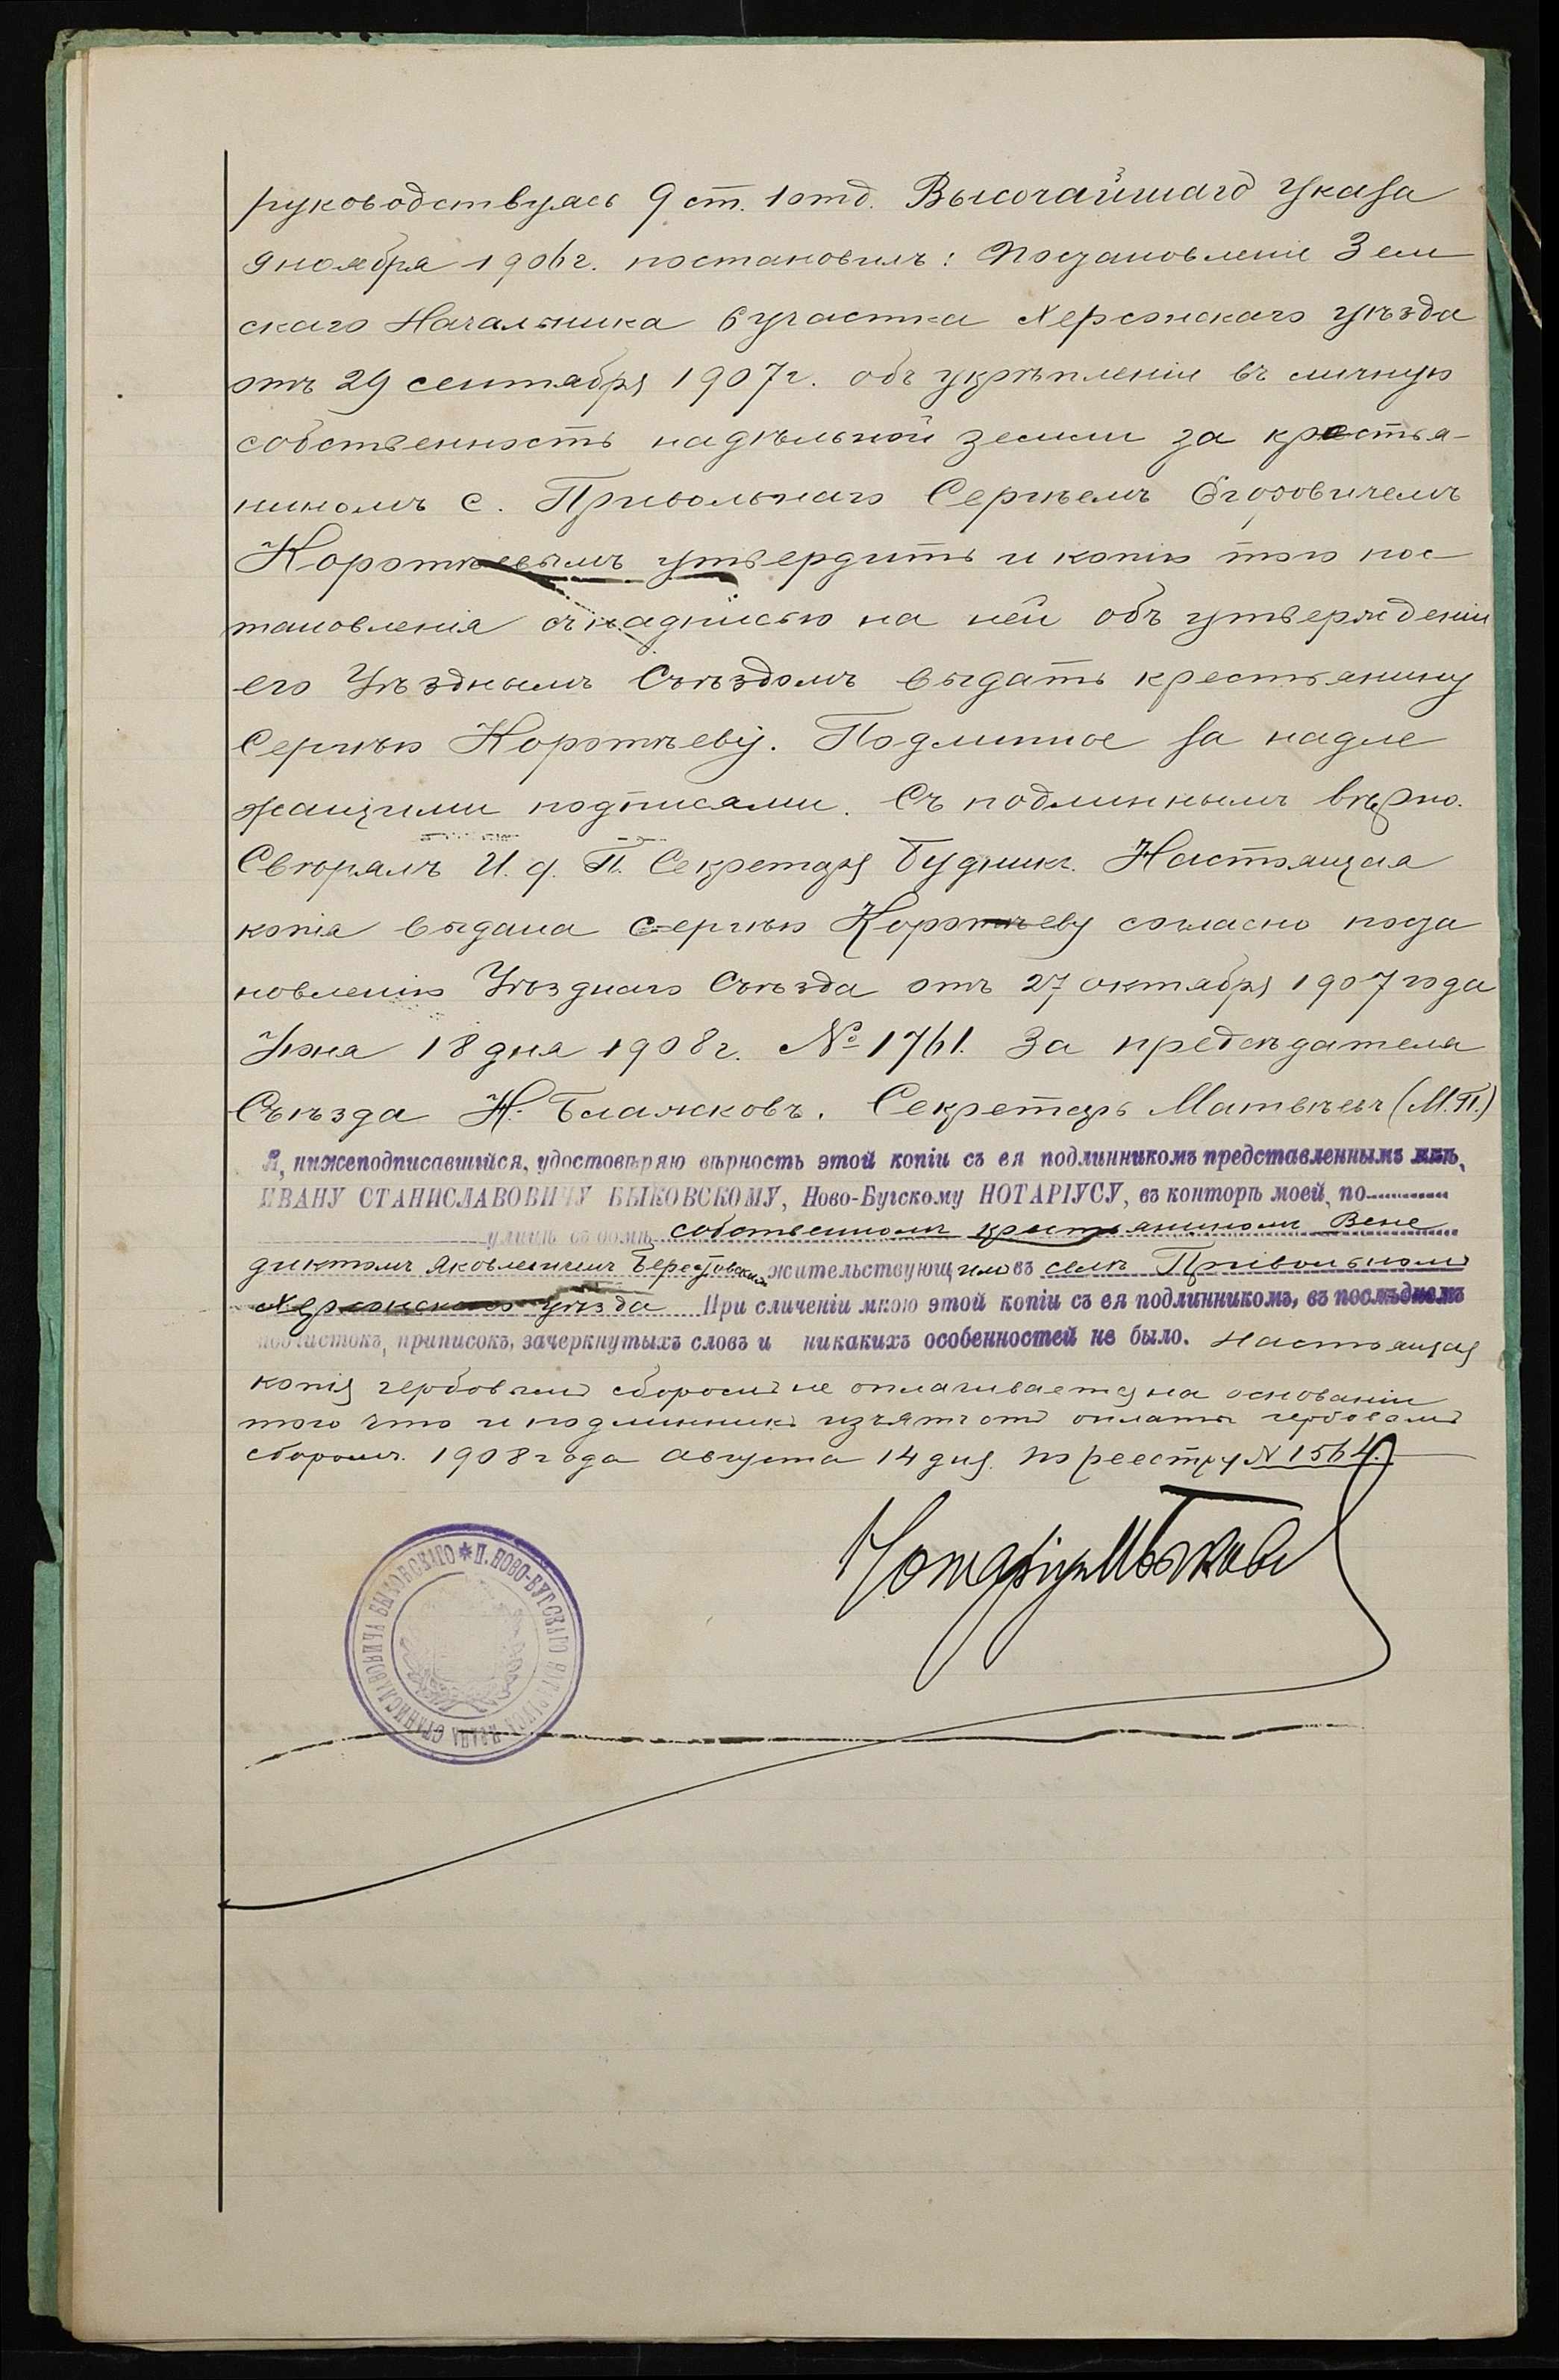 руководствуясь 9 ст. 1 отд. Высочайшаго Указа
9 ноября 1906 г. постановилъ: Постановленіе Зем
скаго Начальника 6 участка Херсонскаго уѣзда
отъ 29 сентября 1907 г. объ укрѣпленіи въ личную
собственность надѣльной земли за крестья-
ниномъ с. Привольнаго Сергѣемъ Егоровичемъ
Коротѣевымъ утвердить и копію того пос-
тановленія съ надписью на ней объ утвержденіи
его Уѣзднымъ Съѣздомъ выдать крестьянину
Сергѣю Коротѣеву. Подлинное за надле
жащими подписями. Съ подлиннымъ вѣрно.
Свѣрялъ И. д. П. Секретаря Будникъ. Настоящая
копія выдана Сергѣю Коротѣеву согласно поста
новленію Уѣзднаго Съѣзда отъ 27 октября 1907 года
Іюня 18 дня 1908 г. № 1761. За предсѣдателя
Съѣзда Н. Блажковъ. Секретарь Матвѣевъ (М.П.)
Я, нижеподписавшійся, удостовѣряю вѣрность этой копіи съ ея подлинникомъ представленнымъ мнѣ,
ИВАНУ СТАНИСЛАВОВИЧУ БЫКОВСКОМУ, Ново-Бугскому НОТАРІУСУ, въ конторѣ моей, по
улицѣ въ домѣ собственномъ крестьяниномъ Вене
диктомъ Яковлевичемъ Берестовскимъ жительствующимъ въ селѣ Привольномъ
Херсонскаго уѣзда При сличеніи мною этой копіи съ ея подлинникомъ, въ послѣднемъ
подчистокъ, приписокъ, зачеркнутыхъ словъ и никакихъ особенностей не было. Настоящая
копія гербовымъ сборомъ не оплачивается на основаніи
того что и подлинникъ изъятъ отъ оплаты гербовымъ
сборомъ. 1908 года Августа 14 дня. По реестру № 1564.
Нотаріусъ И Быковс
П. НОВО-БУГСКАГО НОТАРІУСА ИВАНА СТАНИСЛАВОВИЧА БЫКОВСКАГО